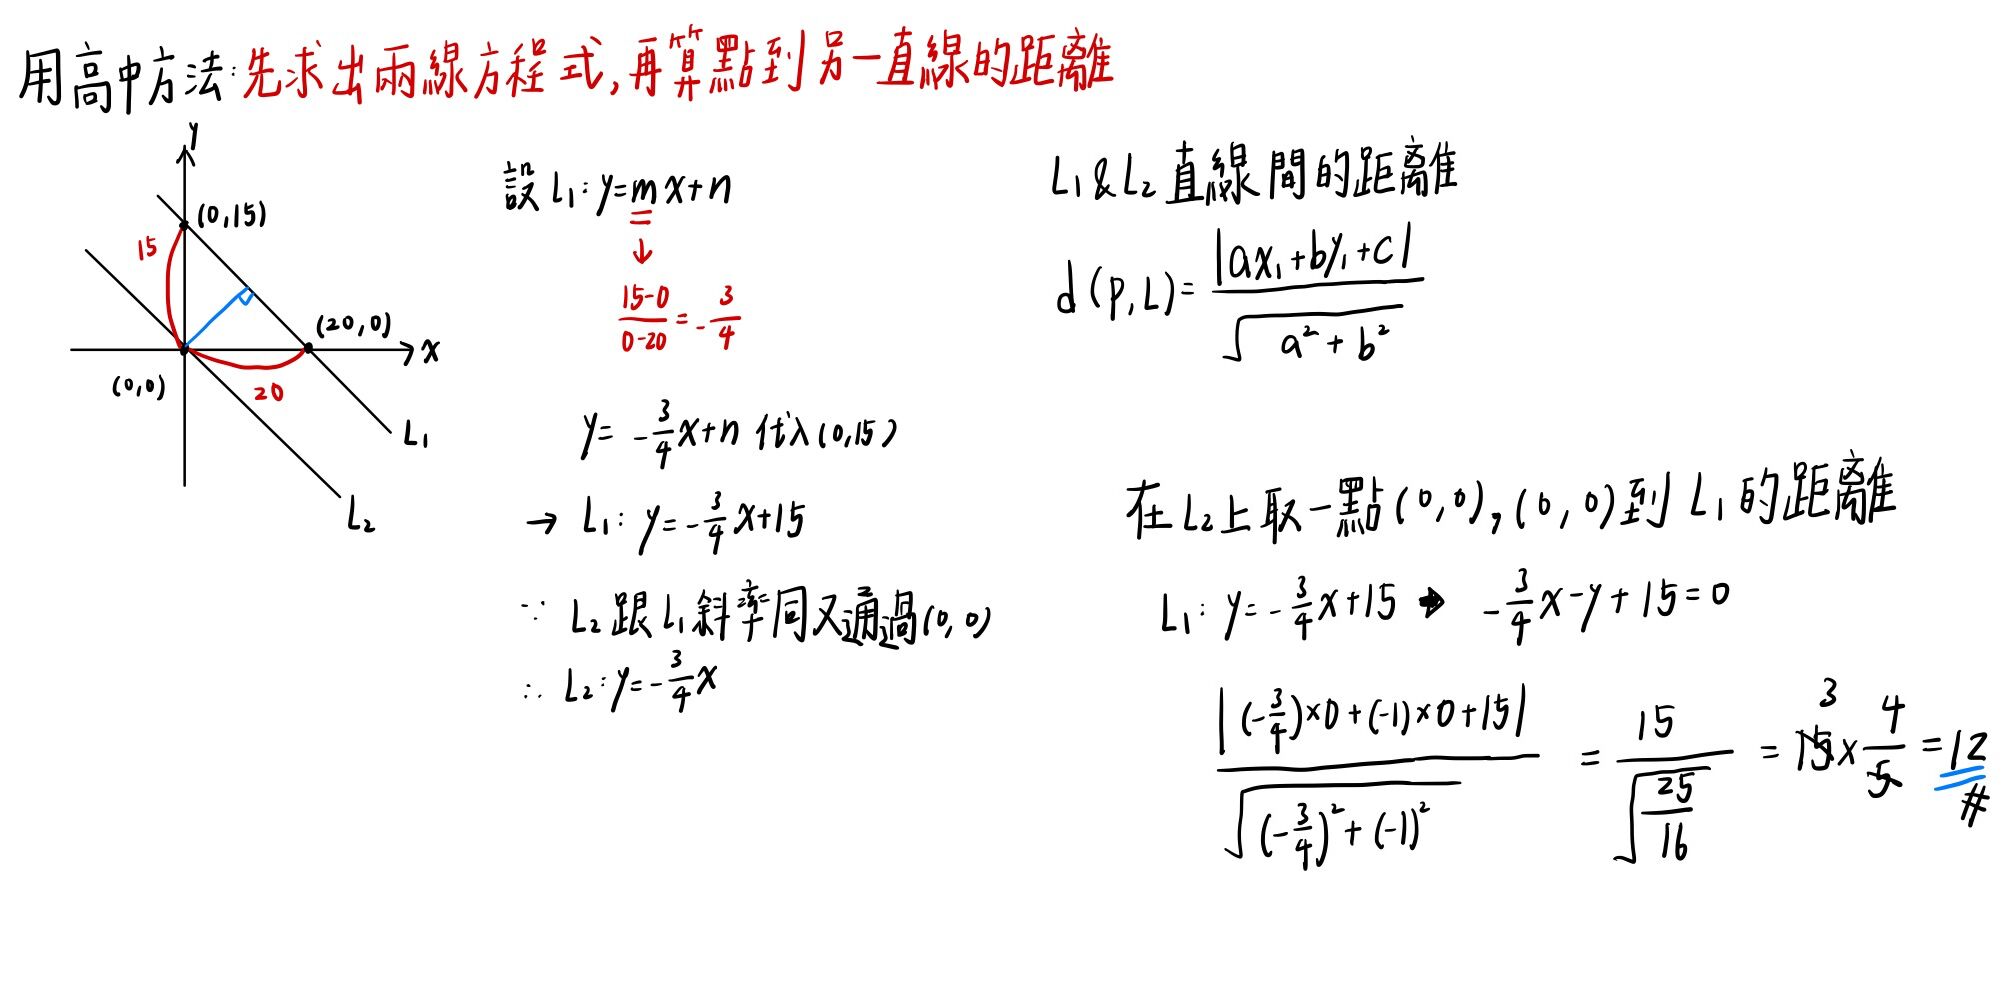 用高中方法:先求出兩線方程式,再算點到另一直線的距離
y
(0,15)
15
(20,0)
x
(0,0)
20
L₁
L₂
設 L₁: y=mx+n
↓
(15-0)/(0-20) = -3/4
y= -3/4x+n 代入(0,15)
→ L₁: y=-3/4x+15
∵ L₂跟L₁斜率同又通過(0,0)
∴ L₂:y=-3/4x
L₁&L₂直線間的距離
d(P,L)= |ax₁+by₁+c| / √(a²+b²)
在L₂上取一點(0,0),(0,0)到L₁的距離
L₁: y=-3/4x+15 → -3/4x-y+15=0
|(-3/4)×0+(-1)×0+15| / √((-3/4)²+(-1)²) = 15/√(25/16) = 15×4/5 = 12 #
3